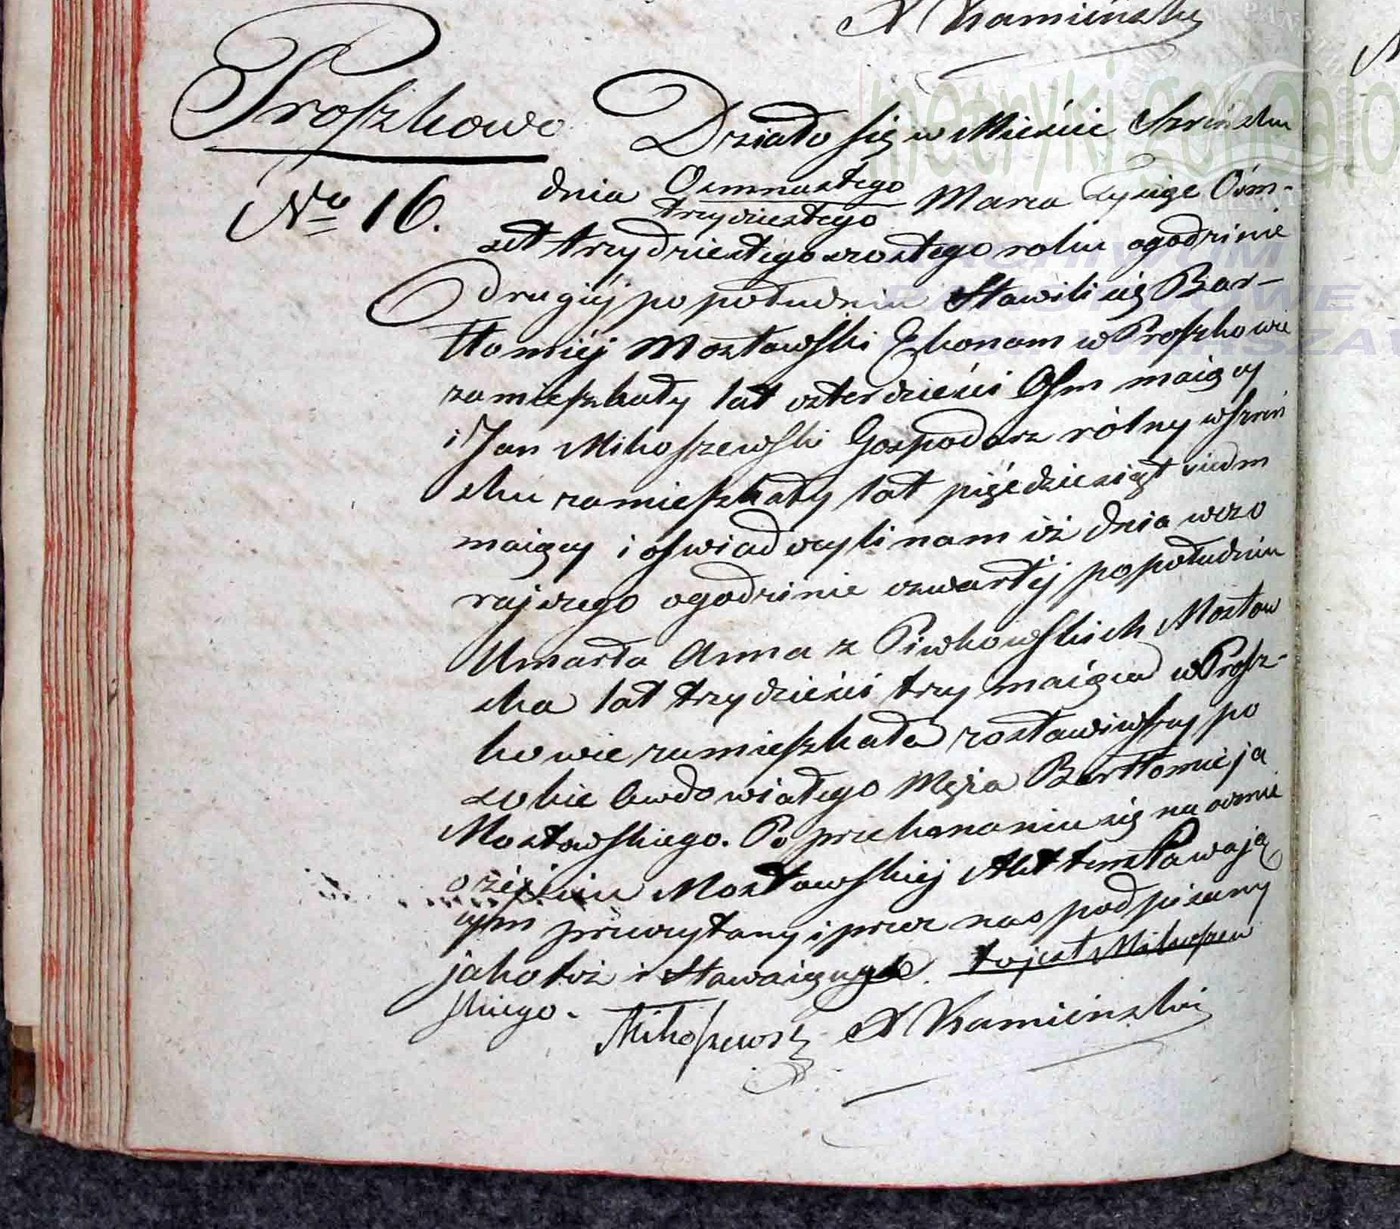 X Kamieński
Proszkowo
No 16.
Działo się w Mieście Szrińsku
dnia Osmnastego
trzydziestego Marca Tysiąc Óśm-
set trzydziestego szostego roku ogodzinie
drugiéj popołudniu Stawili się Bar-
tłomiéj Mostowski Ekonom w Proszkowie
zamieszkały lat czterdzieści Osm maiący
i Jan Mikoszewski Gospodarz rólny wSzriń
sku zamieszkały lat pięćdziesiąt siedm
maiący i oświadczyli nam iż dnia wczo
rajszego ogodzinie czwartéj popołudniu
Umarła Anna z Piwkowskich Mostow
ska lat trzydzieści trzy maiąca w Prosz-
kowie zamieszkała zostawiwszy po
sobie Owdowiałego Męża Bartłomieja
Mostowskiego. Po przekonaniu się naocznie
o zéjściu Mostowskiéj Akt ten stawają
cym przeczytany i przez nas podpisany
jako też i Stawaiącego to jest Mikoszew
skiego.
Mikoszewski X Kamieński
metryki.genealo
ARCHIWUM